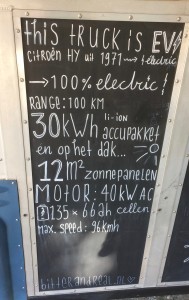 this TRUCK is EV
CitROËN HY uit 1971 → electric
→ 100% electric!
RANGE: 100 KM
30kWh li-ion accupakket
en op het dak...
12m² zonnepanelen
MOTOR: 40kW AC
135 x 66ah cellen
max. speed: 96kmh